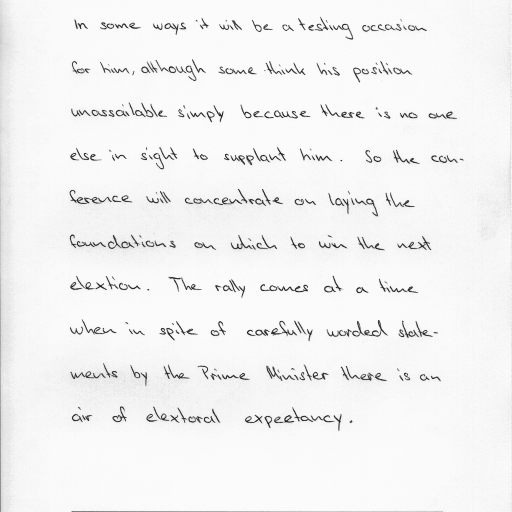 In some ways it will be a testing occasion
for him, although some think his position
unassailable simply because there is no one
else in sight to supplant him. So the con-
ference will concentrate on laying the
foundations on which to win the next
elextion. The rally comes at a time
when in spite of carefully worded state-
ments by the Prime Minister there is an
air of elextoral expectancy.